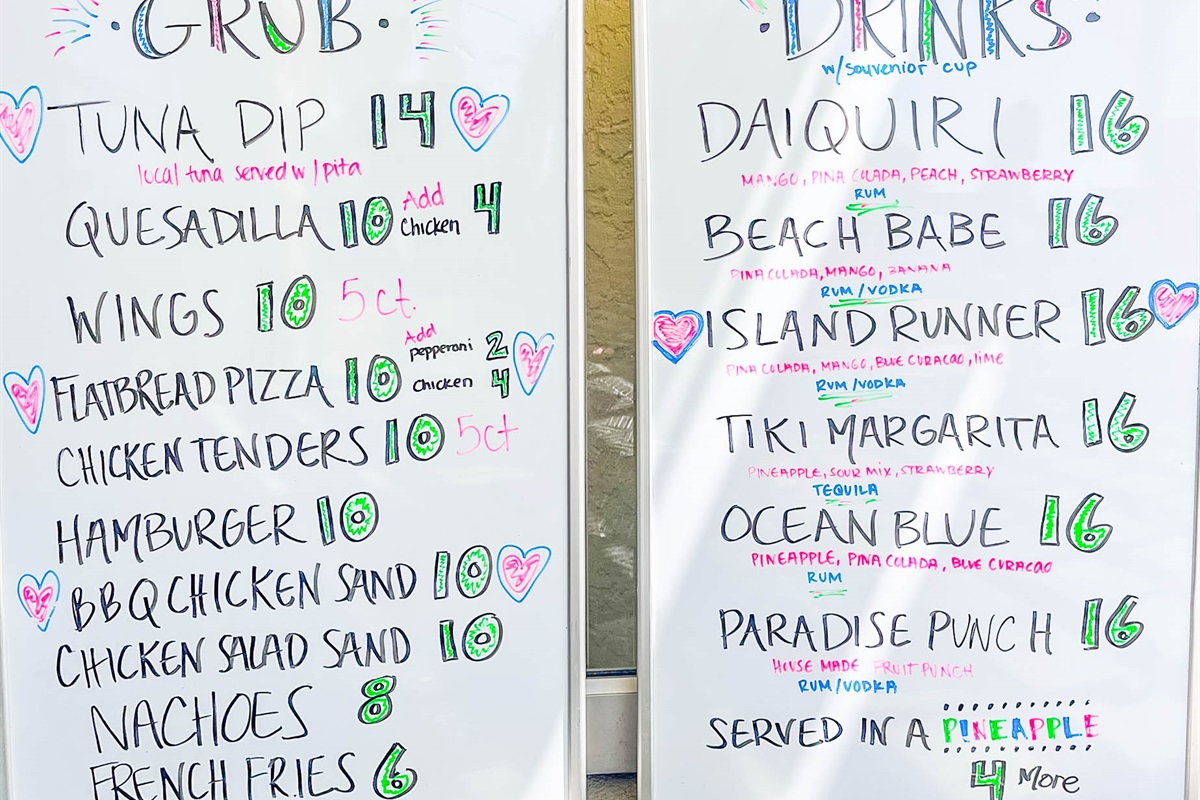 GRUB
TUNA DIP 14
local tuna served w/pita
QUESADILLA 10 Add Chicken 4
WINGS 10 5ct.
FLATBREAD PIZZA 10 Add pepperoni 2
Chicken 4
CHICKEN TENDERS 10 5ct
HAMBURGER 10
BBQ CHICKEN SAND 10
CHICKEN SALAD SAND 10
NACHOES 8
FRENCH FRIES 6
DRINKS
w/souvenior cup
DAIQUIRI 16
MANGO, PINA COLADA, PEACH, STRAWBERRY
RUM
BEACH BABE 16
PINA COLADA, MANGO, BANANA
RUM/VODKA
ISLAND RUNNER 16
PINA COLADA, MANGO, BLUE CURACAO, lime
RUM/VODKA
TIKI MARGARITA 16
PINEAPPLE, SOUR MIX, STRAWBERRY
TEQUILA
OCEAN BLUE 16
PINEAPPLE, PINA COLADA, BLUE CURACAO
RUM
PARADISE PUNCH 16
HOUSE MADE FRUIT PUNCH
RUM/VODKA
SERVED IN A PINEAPPLE
4 More